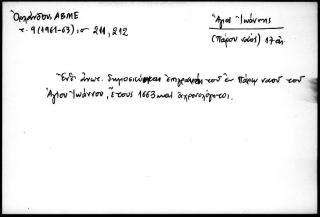 Ὀρλάνδου, ΑΒΜΕ
τ. 9 (1961-63), σ 211, 212
Ἅγιος Ἰωάννης
(Πάρου ναός) 17 αἰ.
Ἐνθ' ἀνωτ. δημοσιεύεται ἐπιγραφὴ τοῦ ἐν Πάρῳ ναοῦ τοῦ
Ἁγίου Ἰωάννου, ἔτους 1663 καὶ ἀχρονολόγητος.